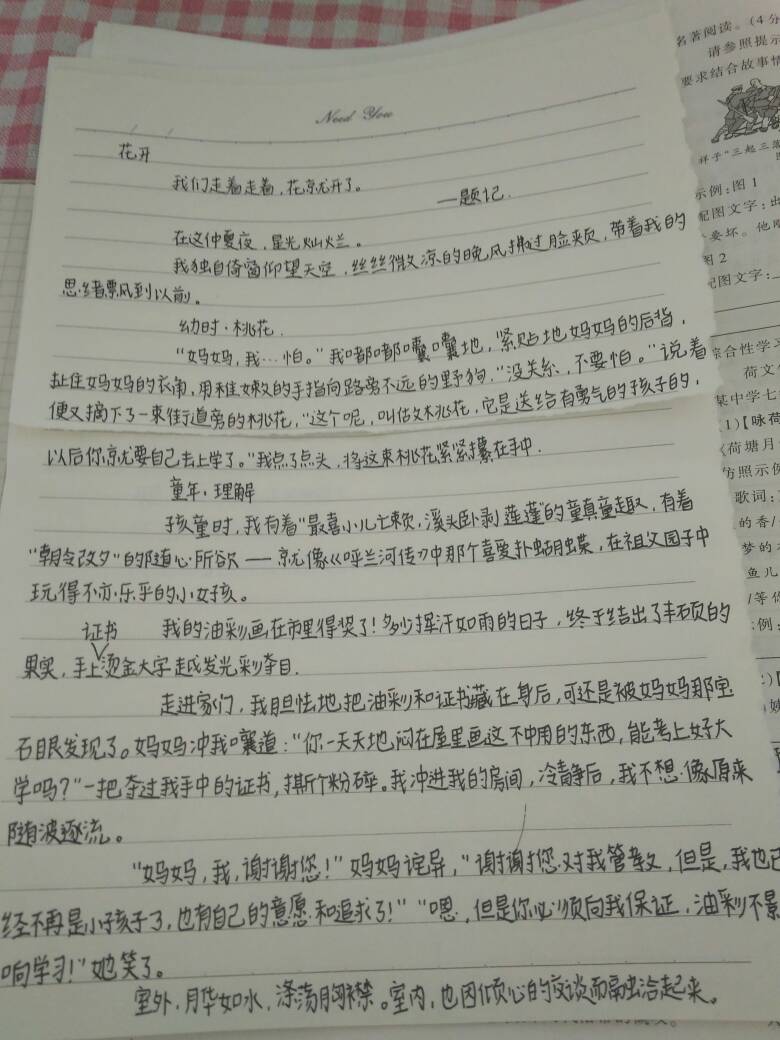 Need You
花开
我们走着走着，花就开了。
——题记.
在这仲夏夜，星光灿烂。
我独自倚窗仰望天空，丝丝微凉的晚风拂过脸颊，带着我的
思绪飘风到以前。
幼时·桃花.
“妈妈，我…怕。”我嘟嘟囔囔地，紧贴地妈妈的后背，
扯住妈妈的衣角，用稚嫩的手指向路旁不远的野狗，“没关系，不要怕。”说着
便又摘下了一束街道旁的桃花，“这个呢，叫桃花，它是送给有勇气的孩子的，
以后你就要自己去上学了。”我点了点头，将这束桃花紧紧攥在手中.
童年·理解
孩童时，我有着“最喜小儿亡赖，溪头卧剥莲蓬”的童真童趣，有着
“朝令改夕”的随心所欲——就像《呼兰河传》中那个喜爱扑蝴蝶，在祖父园子中
玩得不亦乐乎的小女孩。
证书 我的油彩画在市里得奖了！多少挥汗如雨的日子，终于结出了丰硕的
果实，手上烫金大字越发光彩夺目.
走进家门，我胆怯地把油彩和证书藏在身后，可还是被妈妈那宝
石眼发现了。妈妈冲我嚷道：“你一天天地闷在屋里画这不中用的东西，能考上好大
学吗？”一把夺过我手中的证书，撕个粉碎。我冲进我的房间，冷静后，我不想像原来
随波逐流。
“妈妈，我，谢谢您！”妈妈诧异，“谢谢您对我管教，但是，我也已
经不再是小孩子了，也有自己的意愿和追求了！”“嗯，但是你必须向我保证，油彩不影
响学习！”她笑了。
室外，月华如水，涤荡胸襟。室内，也因倾心的交谈而融洽起来。
名著阅读。（4分
请参照提示
要求结合故事情
祥子“三起三落
示例：图1
配图文字：出
要坏。他
图2
配图文字：
综合性学习
荷文
某中学七
1）【咏荷
《荷塘月
仿照示例
歌词：
的香/
梦的
鱼儿
/等你
例：